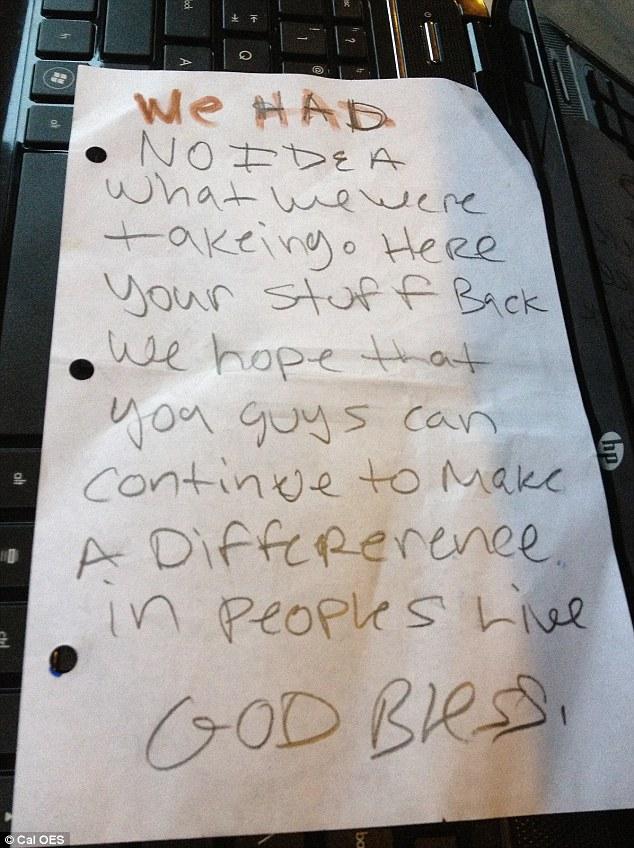 We HAD
NO IDEA
What we were
takeing. Here
your stuff Back
We hope that
you guys can
continue to Make
A Differerence.
in peoples Live
GOD Bless.
hp
© Cal OES